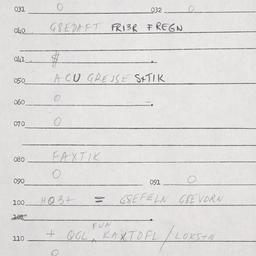 031 0 032 0
040 GBEDAFT FRI3R FREGN
041 $
050 ACU GREJSE S+TIK
060 0
070 0
080 FAXTIK
090 0 091 0
100 HQ3+ = GSEFELN GBEVORN
105
FUN
110 + QGL, KAXTOFL / LOKSHN
0